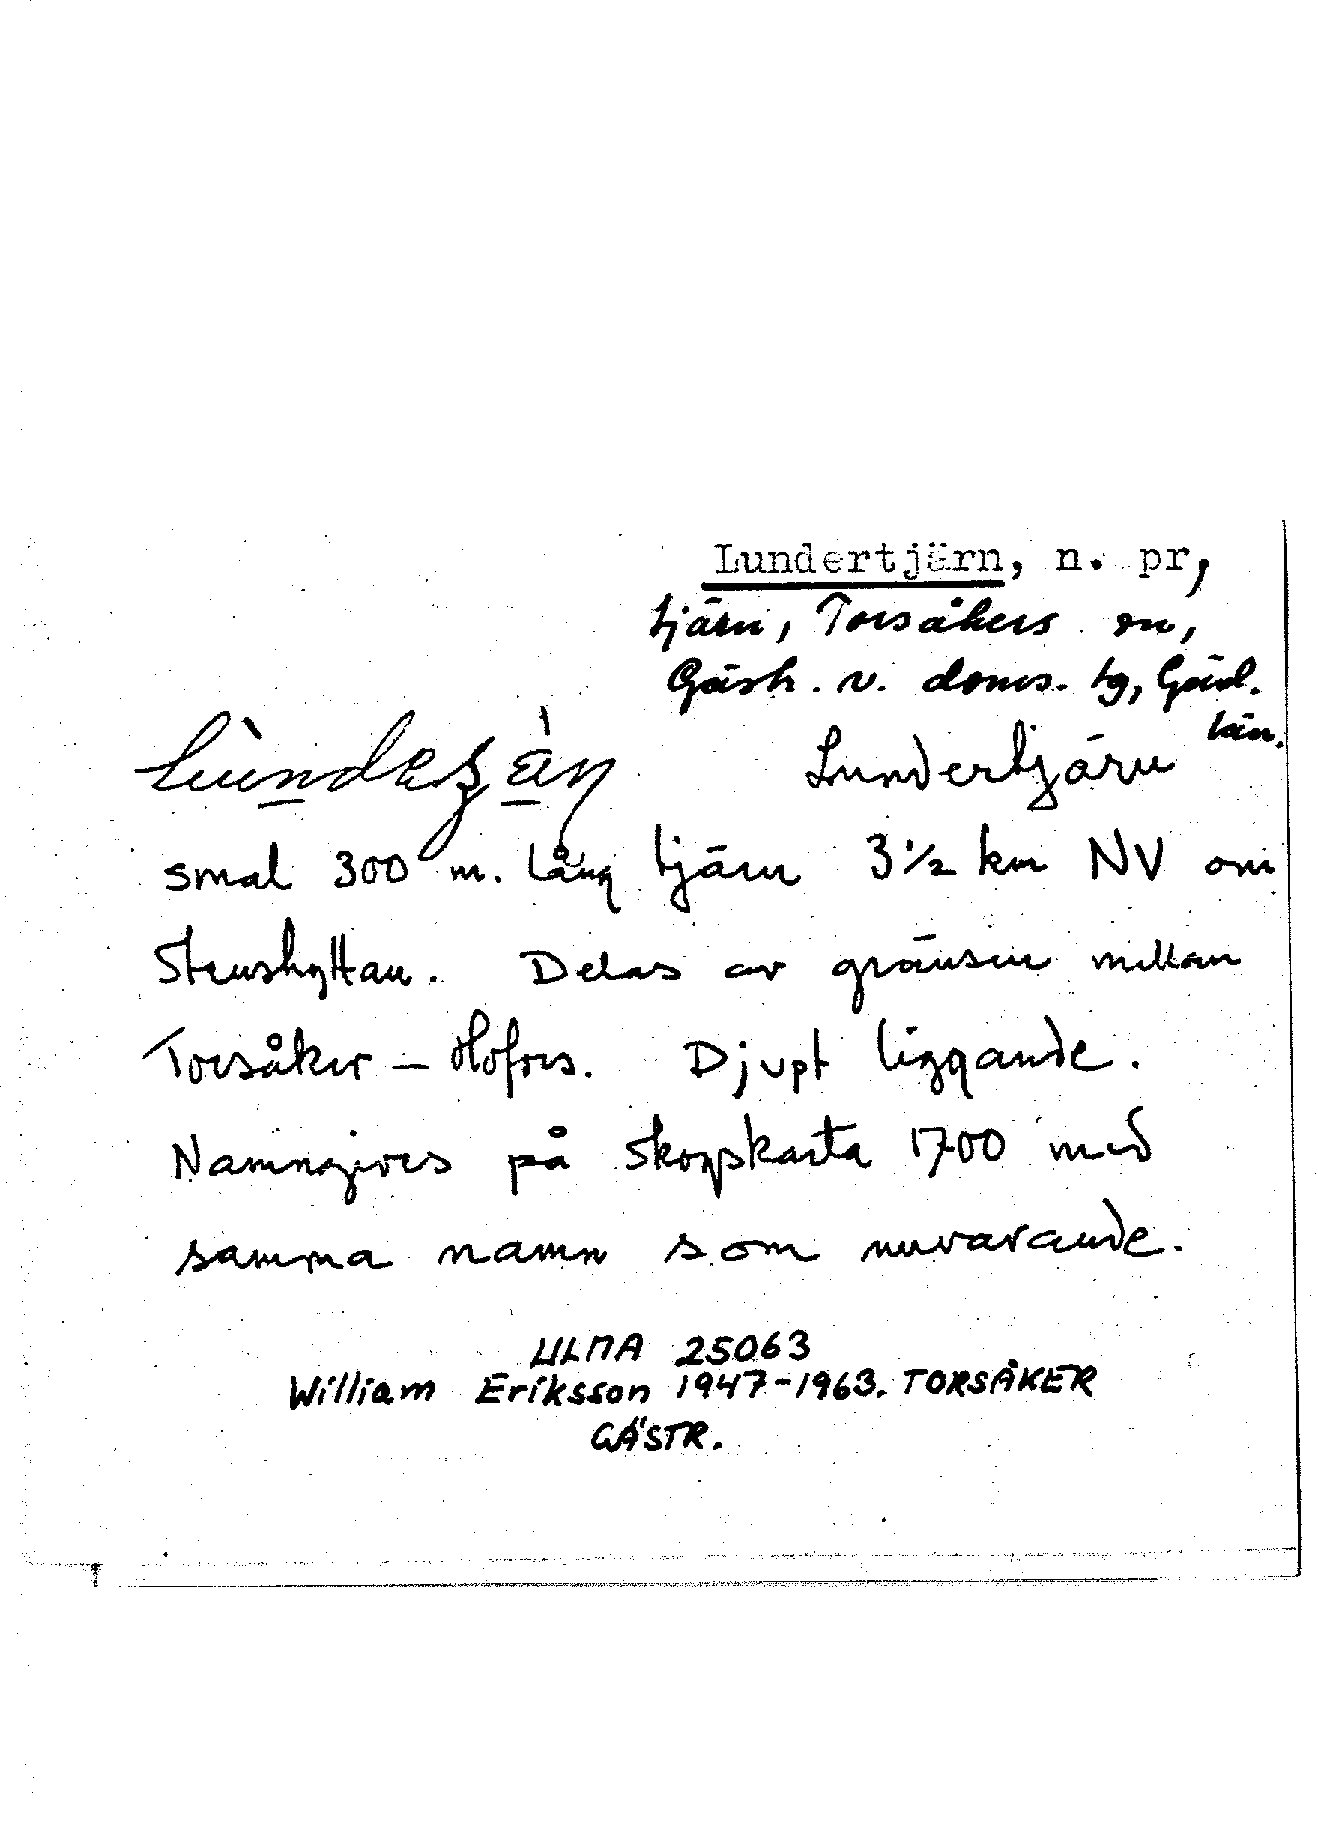 Lundertjärn, n. pr,
tjärn, Torsåkers sn,
Gästr. v. doms. tg, Gävl.
län.
Lundertjärn
smal 300 m. lång tjärn 3 1/2 km NV om
Stenshyttan. Delas av gränsen mellan
Torsåker – Hofors. Djupt liggande.
Namngives på Skogskarta 1700 med
samma namn som nuvarande.
ULMA 25063
William Eriksson 1947-1963. TORSÅKER
GÄSTR.